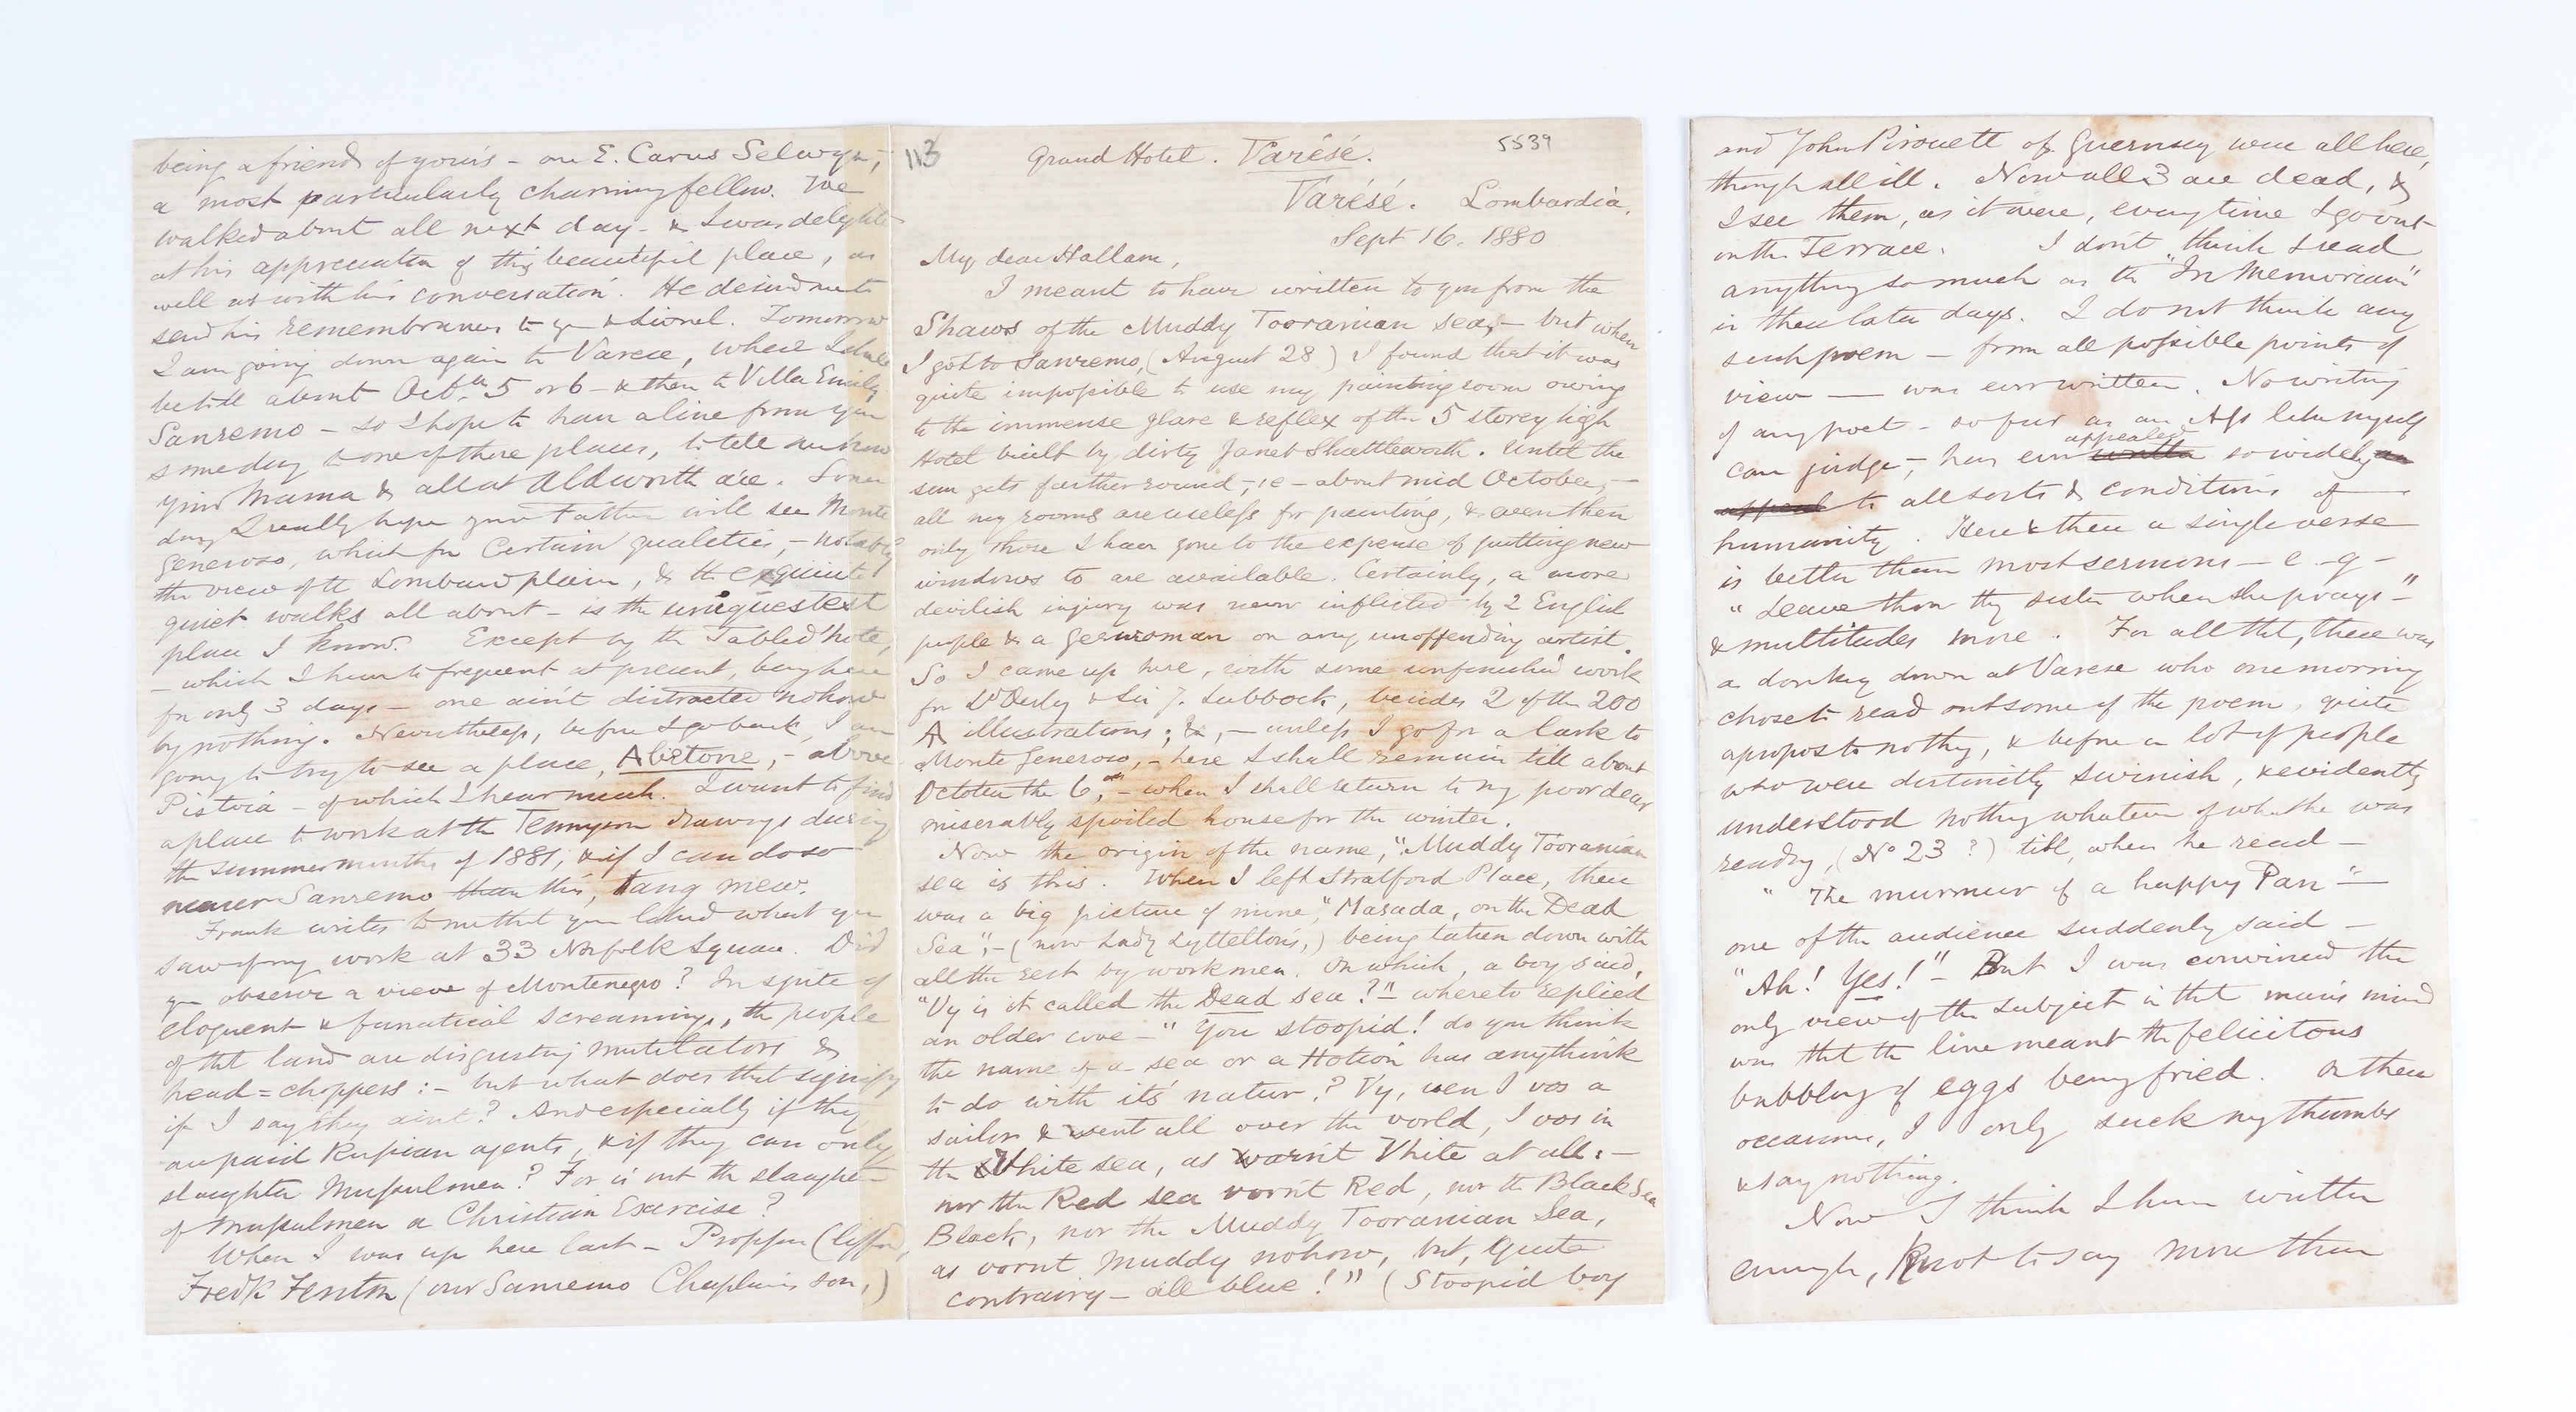 being a friend of yours - one E. Carus Selwyn, -
a most particularly charming fellow. We
walked about all next day - & I was delighted
at his appreciation of this beautiful place, as
well as with his conversation. He desired me to
send his remembrances to you & Lionel. Tomorrow
I am going down again to Varese, where I shall
be till about Octbr. 5 or 6 - & then to Villa Emily
Sanremo - so I hope to have a line from you
someday to one of these places, to tell me how
your Mama & all at Aldworth are. Some
day I really hope your Father will see Monte
Generoso, which for certain qualities, - notably
the view of the Lombard plain, & the exquisite
quiet walks all about - is the uniquestest
place I know. Except by the Table d'hote,
- which I have to frequent at present, being here
for only 3 days - one ain't distracted nohow
by nothing. Nevertheless, before I go back, I am
going to try to see a place, Abetone, - above
Pistoia - of which I hear much. I want to find
a place to work at the Tennyson drawings during
the summer months of 1881, & if I can do so
nearer Sanremo than this, tang mew.
Frank writes to me that you liked what you
saw of my work at 33 Norfolk Square. Did
you observe a view of Montenegro? In spite of
eloquent & fanatical screamings, the people
of that land are disgusting mutilators &
head=choppers: - but what does that signify
if I say they aint? And especially if they
are paid Russian agents, & if they can only
slaughter Mussulmen? For is not the slaughter
of Mussulmen a Christian Exercise?
When I was up here last - Propper Cliffor,
Fredk Fenton (our Sanremo Chaplain's son,)
113
5539
Grand Hotel. Varésé.
Varésé. Lombardia,
Sept 16. 1880
My dear Hallam,
I meant to have written to you from the
Shaws of the Muddy Tooranian sea, - but when
I got to Sanremo, (August 28) I found that it was
quite impossible to use my painting room owing
to the immense glare & reflex of the 5 storey high
Hotel built by dirty Janet Shuttleworth. Until the
sun gets farther round, - ie - about mid October, -
all my rooms are useless for painting, & even then
only those I have gone to the expense of putting new
windows to are available. Certainly, a more
devilish injury was never inflicted by 2 English
people & a Gerwoman on any unoffending artist.
So I came up here, with some unfinished work
for Ld Derby & Sir J. Lubbock, besides 2 of the 200
AT illustrations; &, - unless I go for a lark to
Monte Generoso, - here I shall remain till about
October the 6th, - when I shall return to my poor dear
miserably spoiled house for the winter.
Now the origin of the name, "Muddy Tooranian
sea is this. When I left Stratford Place, there
was a big picture of mine, "Masada, on the Dead
Sea", - (now Lady Lyttelton's,) being taken down with
all the rest by workmen. On which, a boy said,
"Vy is it called the Dead sea?" - whereto replied
an older cove - "You stoopid! do you think
the name of a sea or a Hotion has anythink
to do with its natur? Vy, wen I vos a
sailor & went all over the world, I vos in
the Vhite sea, as warn't Vhite at all: -
nor the Red sea vorn't Red, nor the Black Sea
Black, nor the Muddy Tooranian Sea,
as vornt Muddy nohow, but, quite
contrairy - all blue!" (Stoopid boy
and John Pirouett of Guernsey were all here,
though all ill. Now all 3 are dead, &
I see them, as it were, every time I go out
on the Terrace. I don't think I read
anything so much as the "In Memoriam"
in these later days. I do not think any
such poem - from all possible points of
view - was ever written. No writing
of any poet - so far as an Ass like myself
can judge, - has ever written appealed so widely as
appeal to all sorts & conditions of
humanity. Here & there a single verse
is better than most sermons - e.g -
"Leave thou thy sister when she prays -"
& multitudes more. For all that, there was
a donkey down at Varese who one morning
chose to read out some of the poem, quite
apropos to nothing, & before a lot of people
who were distinctly swinish, & evidently
understood nothing whatever of what he was
reading, (No 23?) till, when he read -
"The murmur of a happy Pan" -
one of the audience suddenly said -
"Ah! Yes!" - But I was convinced the
only view of the subject in that man's mind
was that the line meant the felicitous
bubbling of eggs being fried. On these
occasions, I only suck my thumbs
& say nothing.
Now I think I have written
enough, knot to say more than